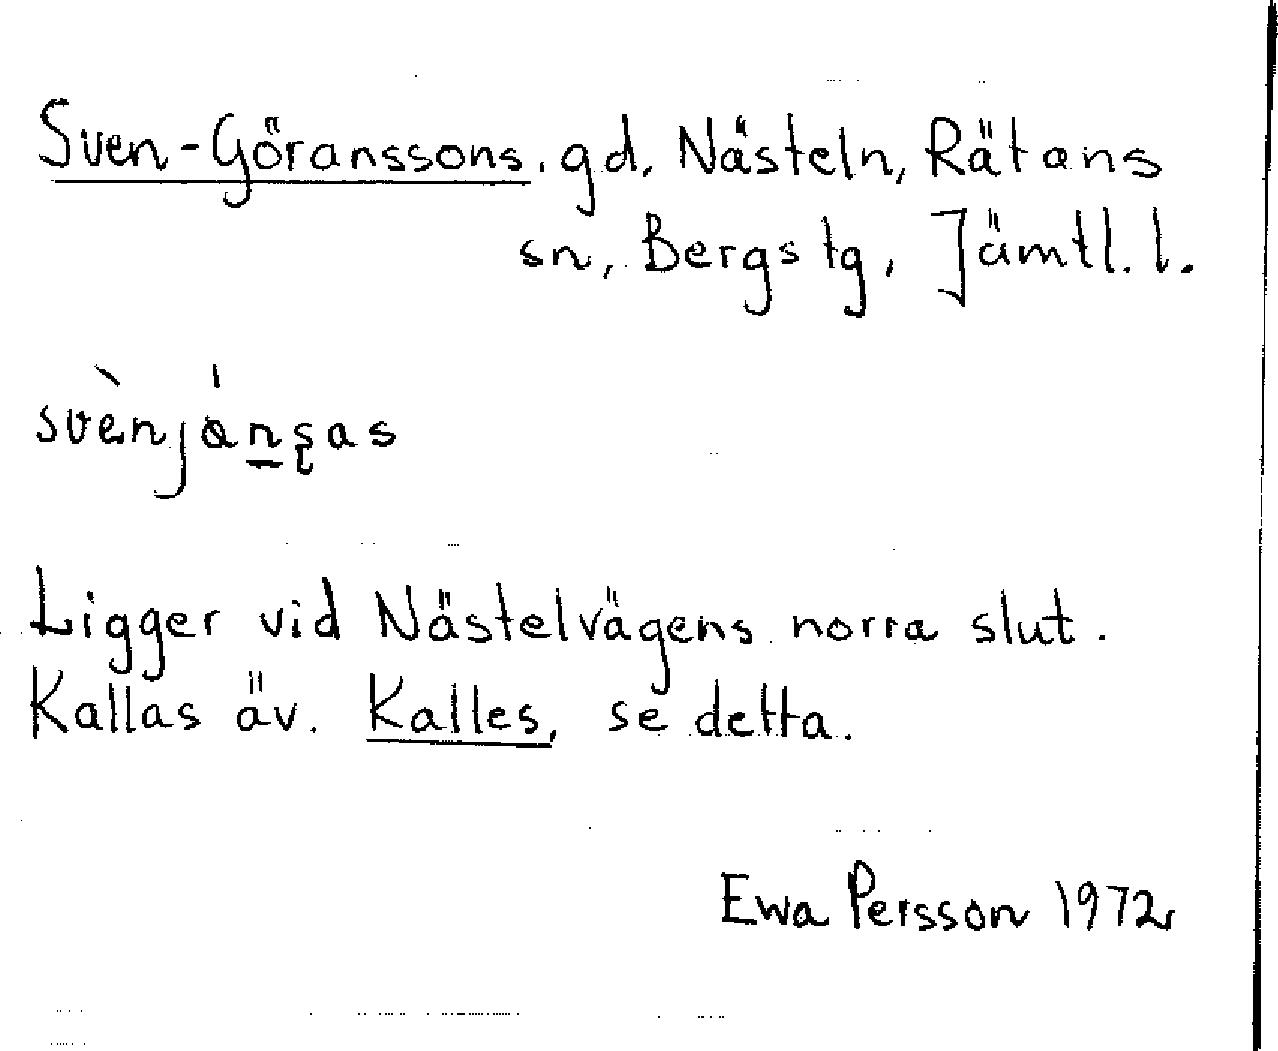 Sven-Göranssons. gd, Nästeln, Rätans
sn, Bergs tg, Jämtl. l.
svènjánʂas
Ligger vid Nästelvägens norra slut.
Kallas äv. Kalles, se detta.
Ewa Persson 1972